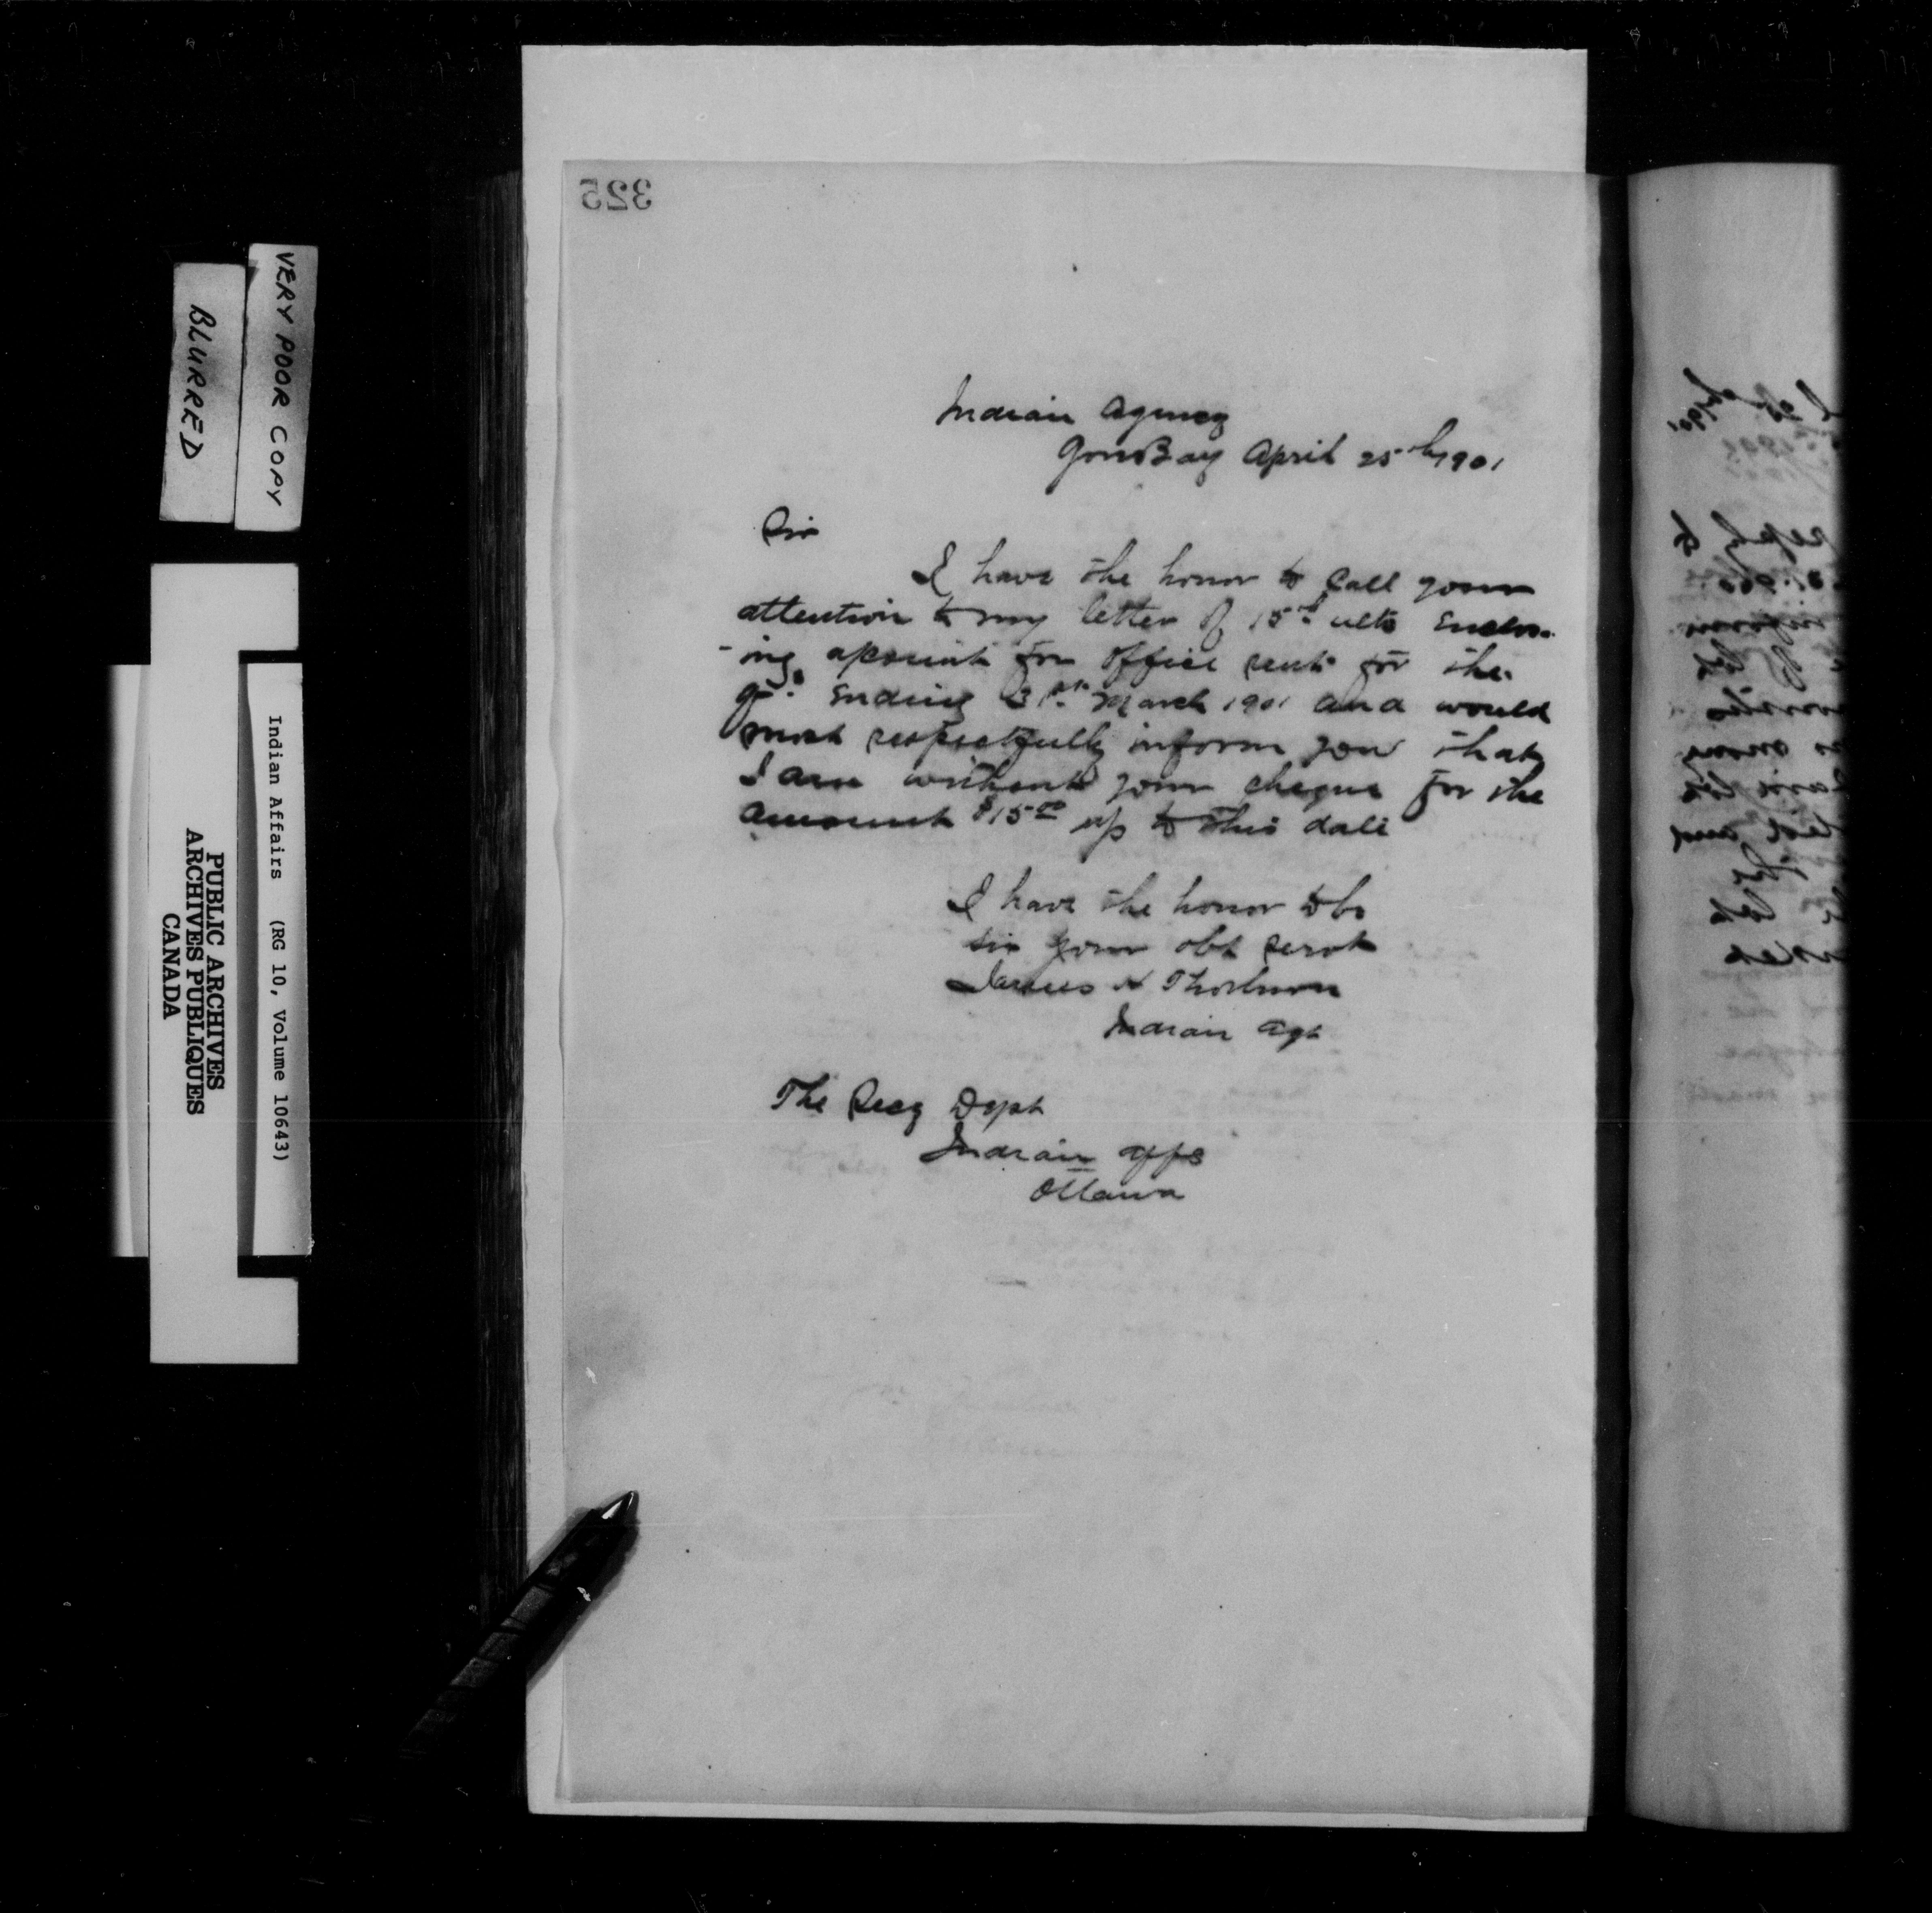 325
Indian Agency
Gore Bay April 25th 1901
Sir
I have the honor to call your
attention to my letter of 15th ulto enclos-
-ing account for office rent for the
qr. ending 31st March 1901 and would
most respectfully inform you that
I am without your cheque for the
amount $15.00 up to this date
I have the honor to be
sir your obt servt
James H Thorburn
Indian Agt
The Secy Dept
Indian Affs
Ottawa
VERY POOR COPY
BLURRED
Indian Affairs (RG 10, Volume 10643)
PUBLIC ARCHIVES
ARCHIVES PUBLIQUES
CANADA